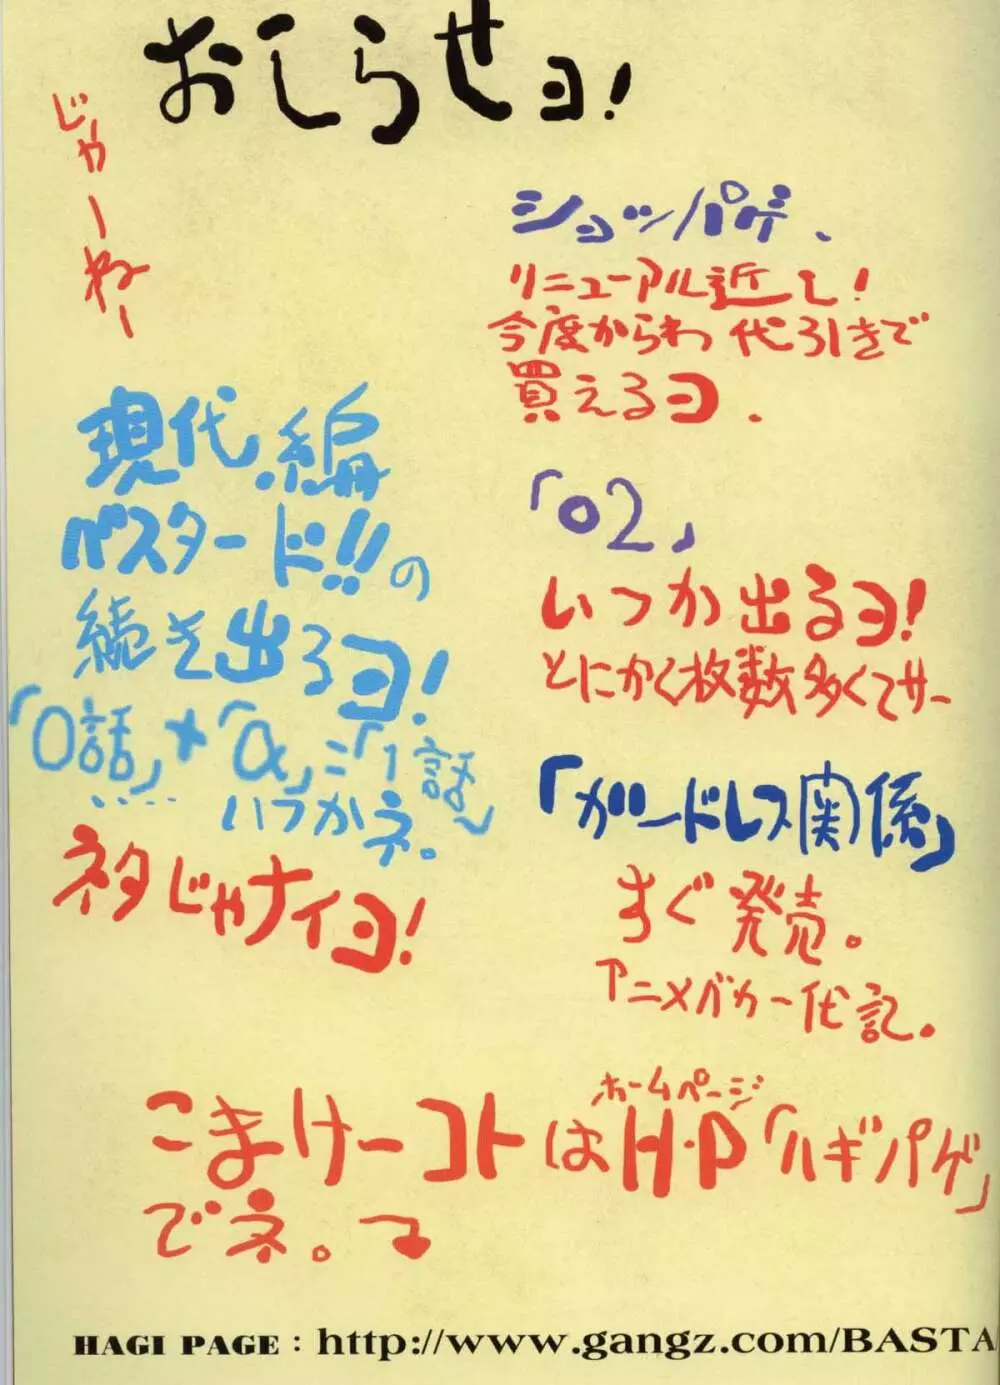 おしらせヨ!
ショッパゲ、
リニューアル近し!
今度からわ代引きで
買えるヨ、
「02」
いつか出るヨ!
とにかく枚数多くてサー
「ガードレス関係」
すぐ発売。
アニメバカ一代記。
現代編
バスタード!!の
続き出るヨ!
「0話」+「α」=「1話〜
・・・・いつかネ。
ネタじゃナイヨ!
じゃーねー
こまけーコトはH・P「ハギパゲ」
ホームページ
でネ。
HAGI PAGE : http://www.gangz.com/BASTA